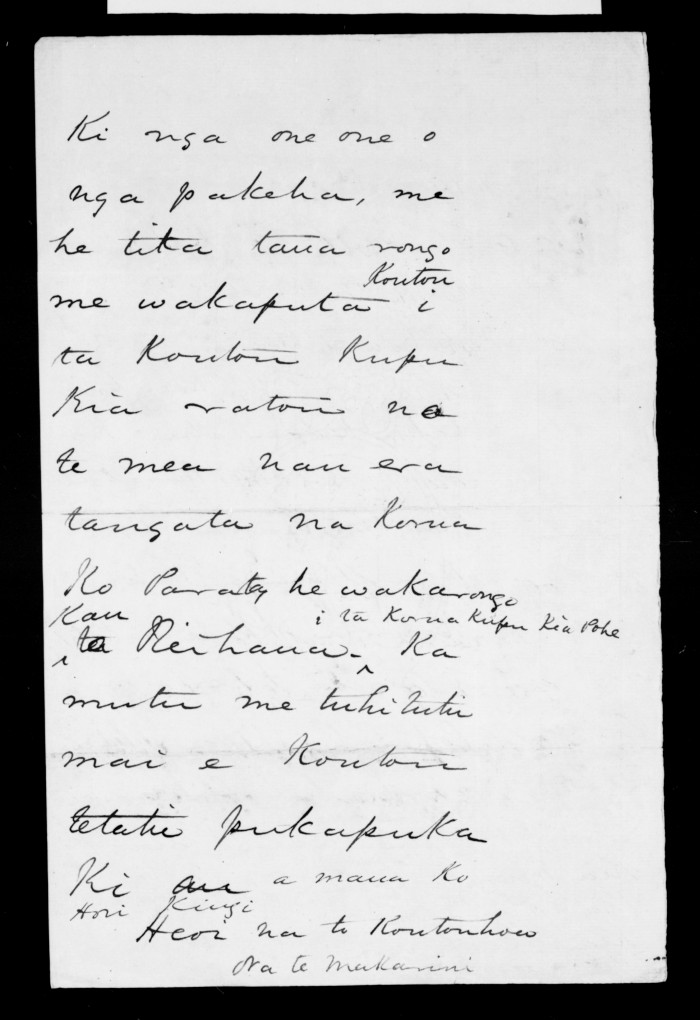 Ki nga one one o
nga pakeha, me
he tika taua rongo
Koutou
me wakaputa i
ta Koutou Kupu
Kia ratou no
te mea nau era
tangata na Korua
Ko Parata, he wakarongo
Kau i ta Korua Kupu Kia Pohe
Reihana. Ka
mutu me tuhituhi
mai e Koutou
tetahi pukapuka
Ki au a maua Ko
Hori Kingi
Heoi na to Koutou hoa
Na te Makarini